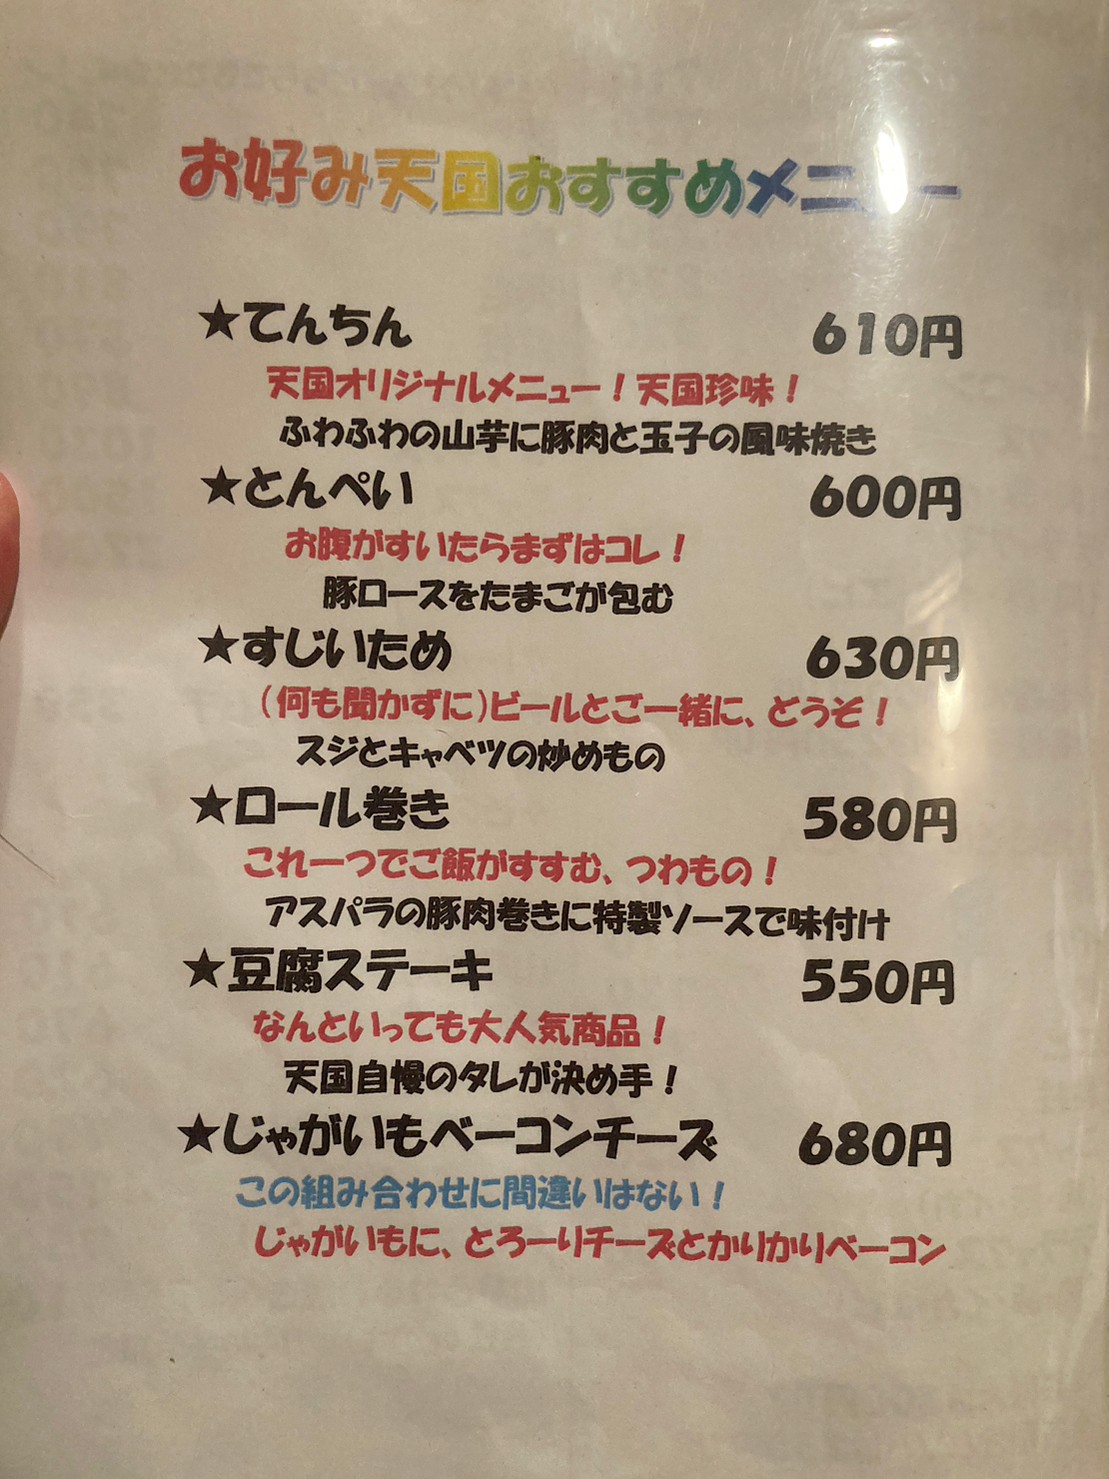 お好み天国おすすめメニュー
★てんちん 610円
天国オリジナルメニュー！天国珍味！
ふわふわの山芋に豚肉と玉子の風味焼き
★とんぺい 600円
お腹がすいたらまずはコレ！
豚ロースをたまごが包む
★すじいため 630円
（何も聞かずに）ビールとご一緒に、どうぞ！
スジとキャベツの炒めもの
★ロール巻き 580円
これ一つでご飯がすすむ、つわもの！
アスパラの豚肉巻きに特製ソースで味付け
★豆腐ステーキ 550円
なんといっても大人気商品！
天国自慢のタレが決め手！
★じゃがいもベーコンチーズ 680円
この組み合わせに間違いはない！
じゃがいもに、とろーりチーズとかりかりベーコン